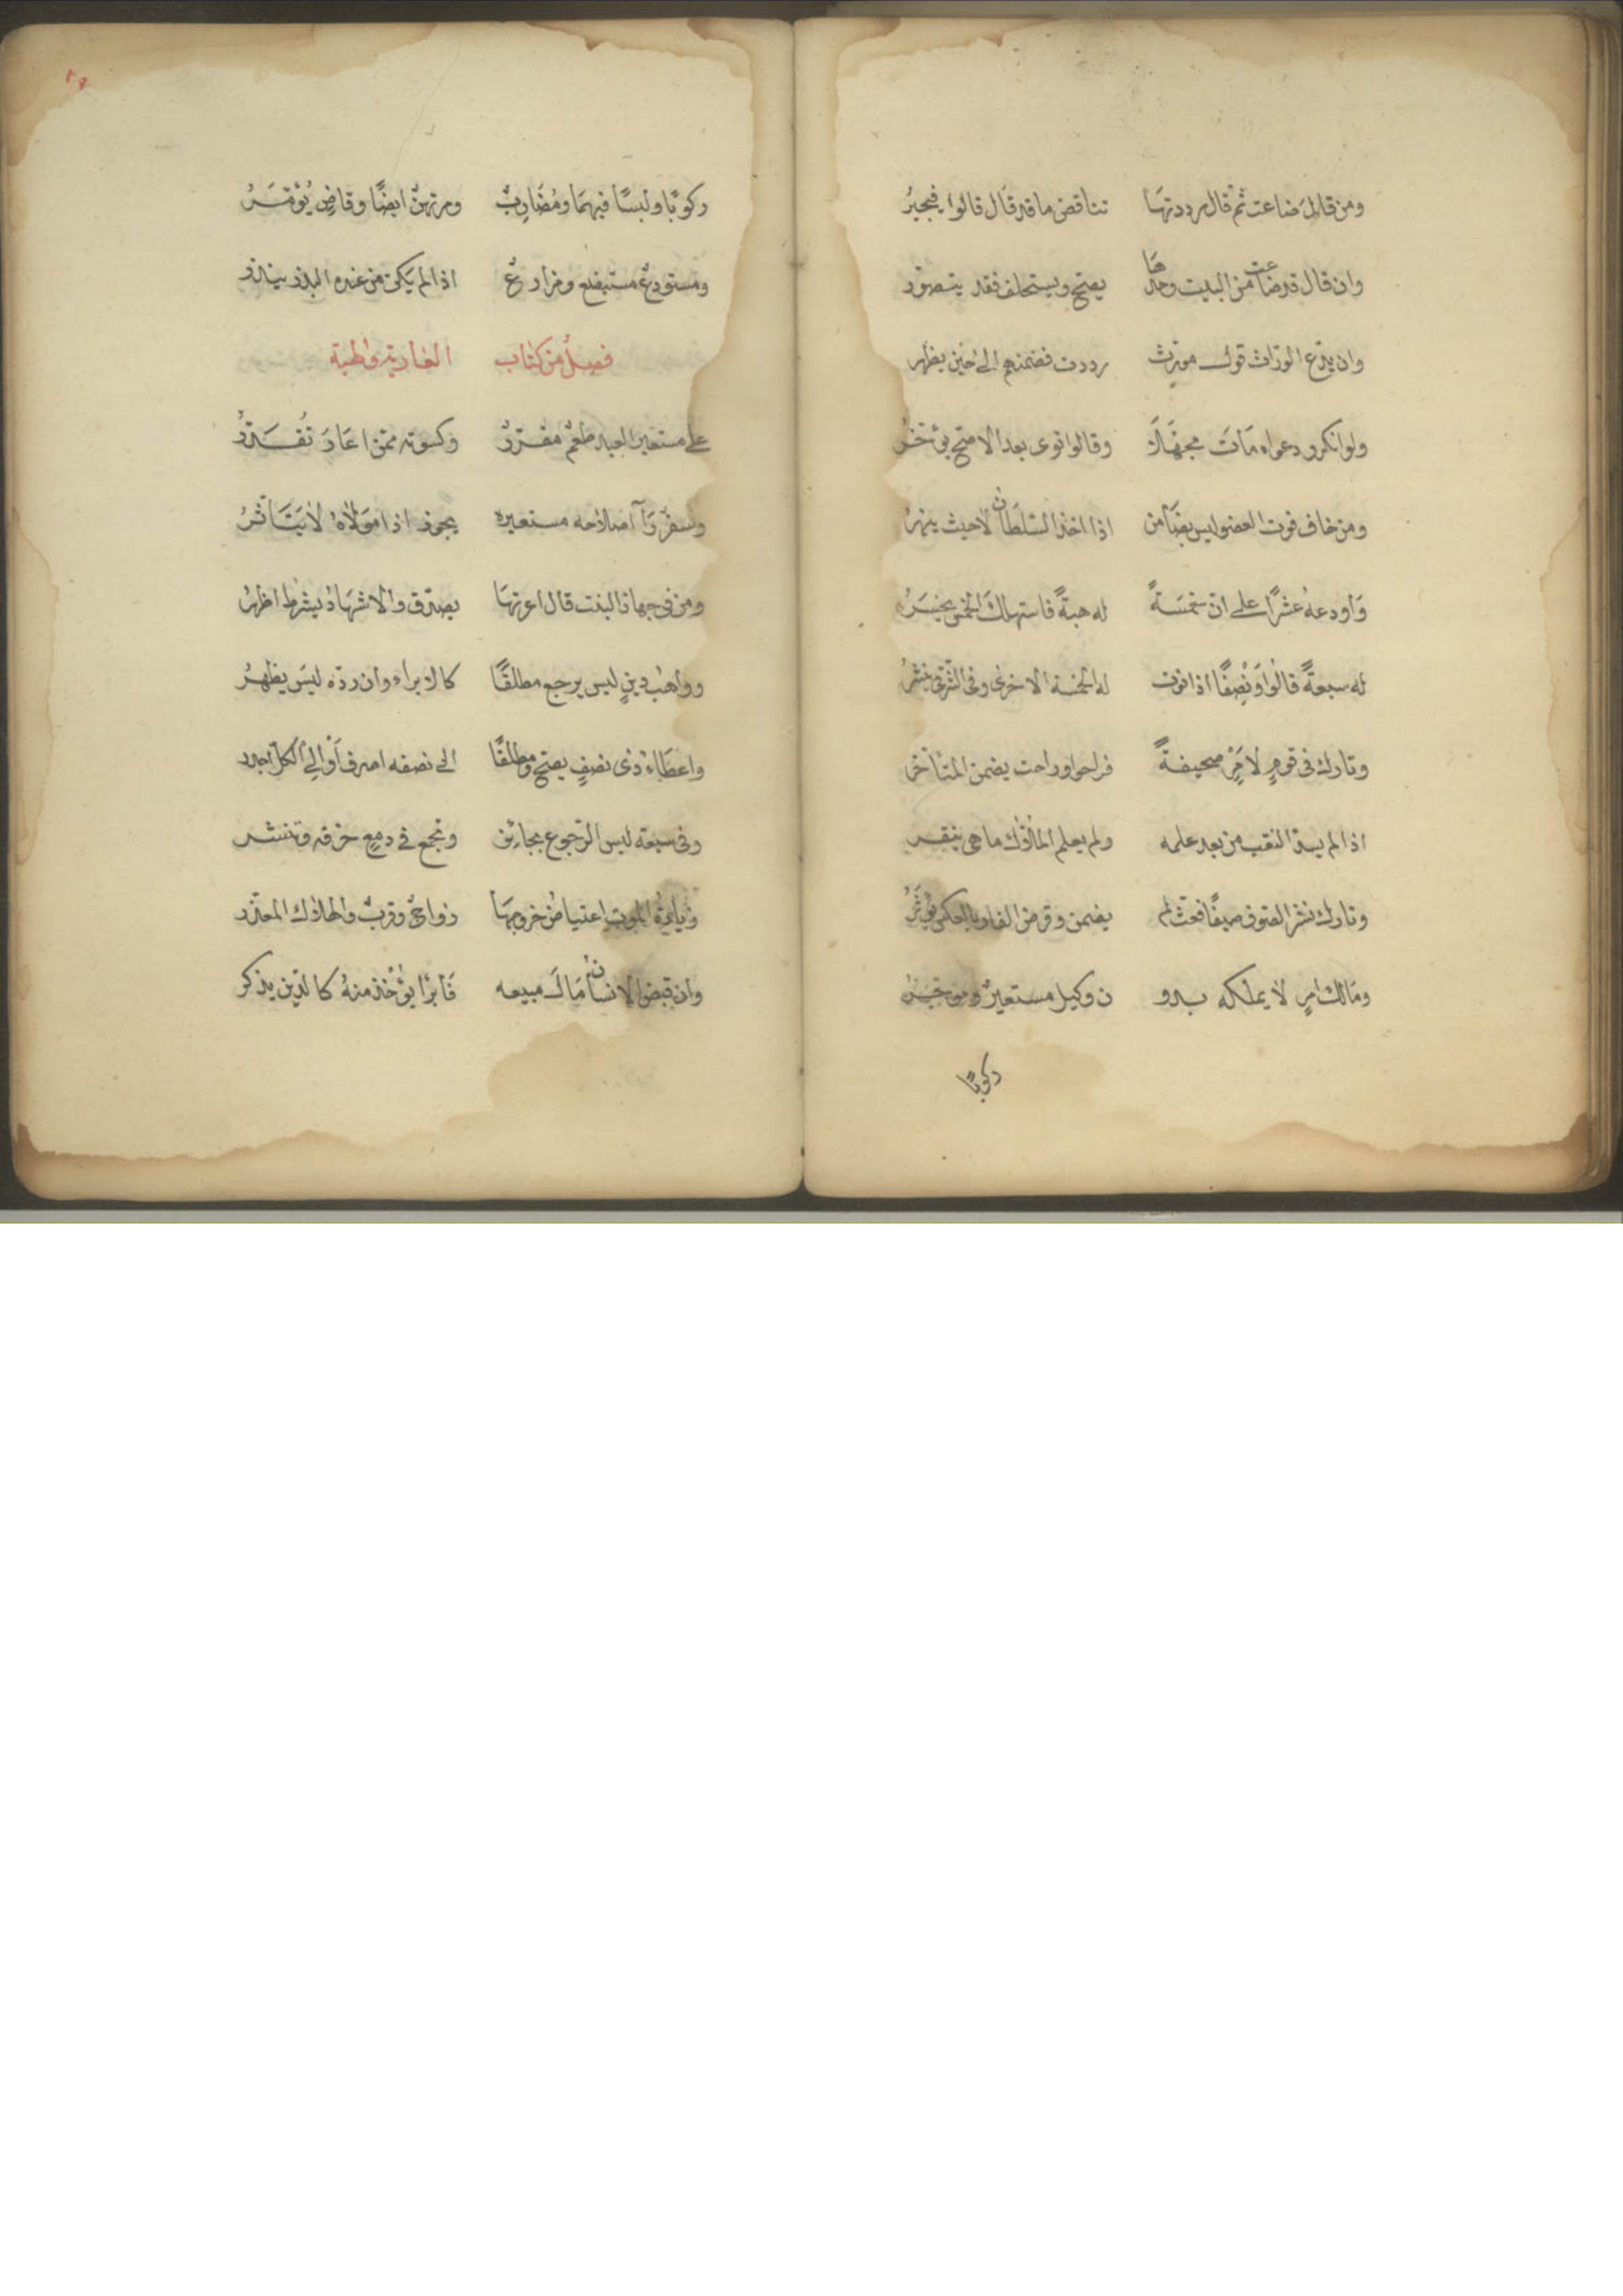 ومن قال ضاعت ثم قال رددتها تناقض ما قد قال قالوا فيجبر
وان قال قد ضاعت من البيت وحدها يصح ويستحلف فقد يتصور
وان يدع الوراث قول مورث رددت فضمنهم الى حين يظهر
ولو انكرو دعواه مات مجهلا وقالوا توى بعد الاصح يؤخر
ومن خاف فوت العضو ليس بضامن اذا اخذ السلطان لا حيث ينهر
واودعه عشرا على ان خمسة له هبة فاستهلك الخمس يخسر
له سبعة قالوا ونصفا اذا توت له الخمسة الاخرى وفي
وتارك في قوم لامر صحيفة فراحوا وراحت يضمن المتأخر
اذا لم يسد النقب من بعد علمه ولم يعلم الملاك ما هى ينقر
وتارك نشر الصوف صيفا فعث لم يضمن وقرض الفار بالعكس يؤثر
ومالك امر لا يملكه بدو ن وكيل مستعير وموجر
ركوبا
ركوبا ولبسا فيهما ومضارب ومرتهن ايضا وقاض يؤمر
ومستودع مستبضع ومزارع اذا لم يكن من عنده البذر يبذر
فصل من كتاب العارية والهبة
على مستعير العبد طعم مقرر وكسوته ممن اعار تقدر
وسفر رآ اصلاحه مستعيره يجوز اذا مولاه لا يتأثر
ومن في جهاز البنت قال اعرتها يصدق والاشهاد يشرط اظهر
وواهب دين ليس يرجع مطلقا كالابراء وان رده ليس يظهر
واعطاء ذى نصف يصح ومطلقا الى نصفه اصرف او الى الكل اجدر
وفى سبعة ليس الرجوع بجائز وتجمع في دمع خزقه وتنشر
زيادة الموت اعتياض خروجها زواج وقرب والهلاك المحذر
وان قبض الانسان مال مبيعه فابرا يؤخذ منه كالدين يذكر